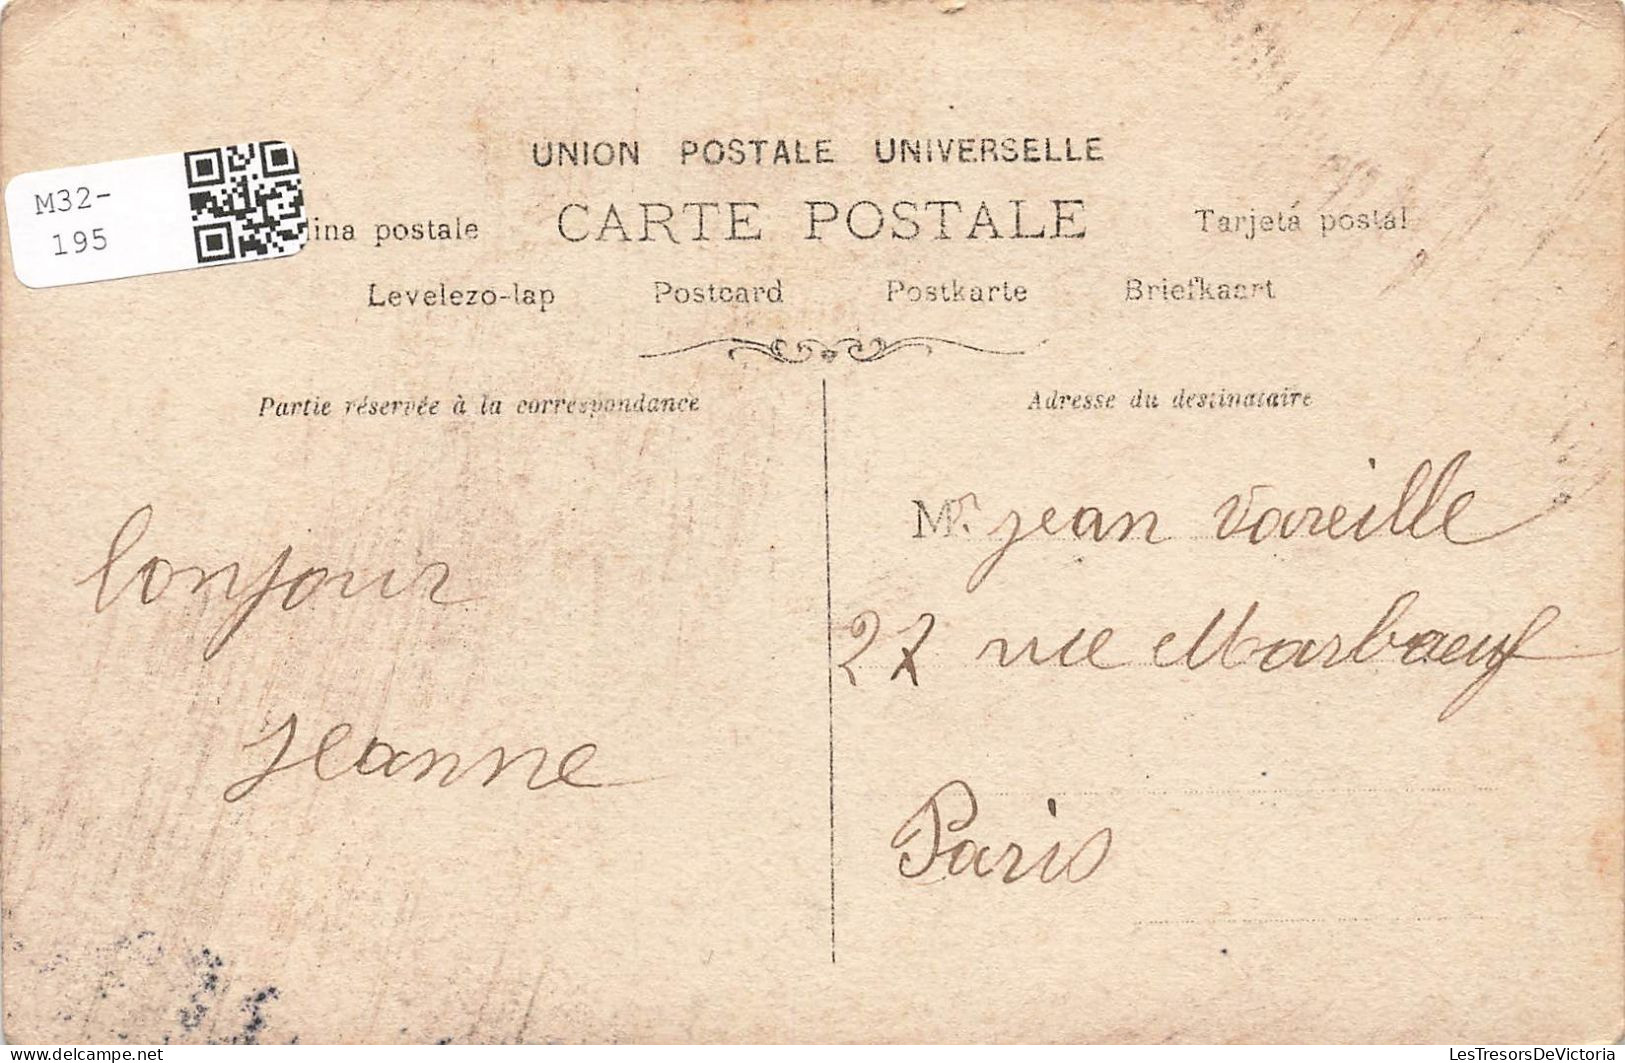 UNION POSTALE UNIVERSELLE
M32-
195
lina postale CARTE POSTALE Tarjetá postal
Levelezo-lap Postcard Postkarte Briefkaart
Partie réservée à la correspondance
Adresse du destinataire
bonjour
Jeanne
Mr jean Vareille
27 rue Marbaeuf
Paris
delcampe.net
LesTresorsDeVictoria